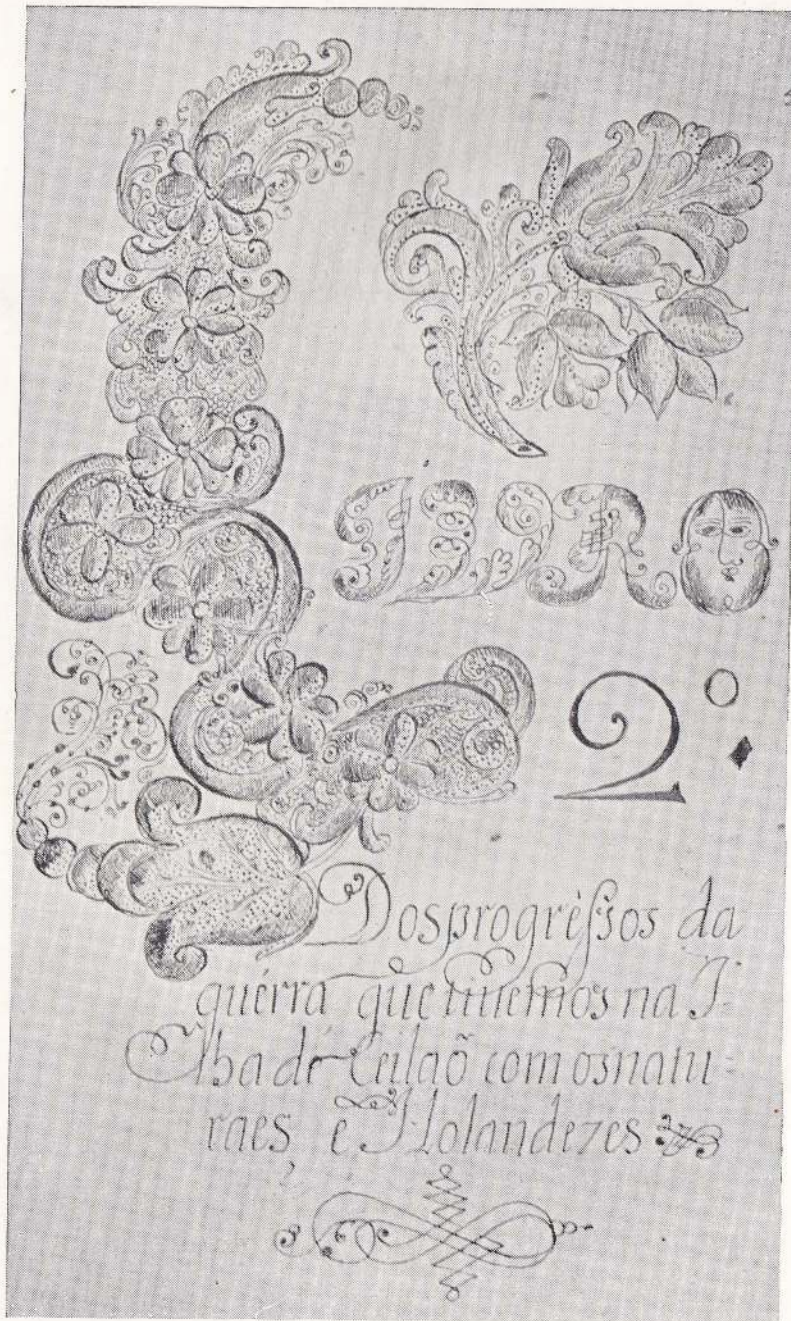 LIVRO
2º
Dos progréssos da
guérra que tiuemos na I-
lha de Ceilaõ com os natu-
raes e Holandezes